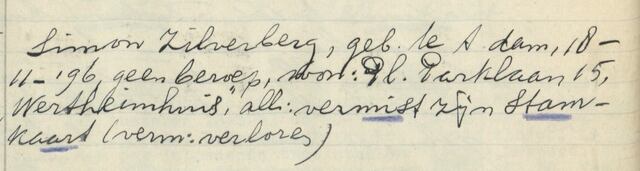 Simon Zilverberg, geb. te A dam, 18-
11-'96, geen beroep, won: Pl. Parklaan 15,
Wertheimhuis", alh: vermist zijn Stam-
kaart (verm: verloren)